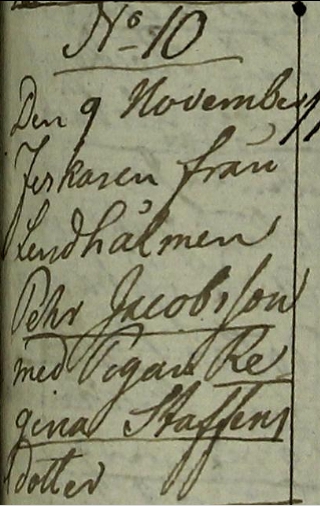 No 10
Den 9 November
Fiskaren från
Lindhålmen
Pehr Jacobsson
med Pigan Re
gina Staffens
dotter